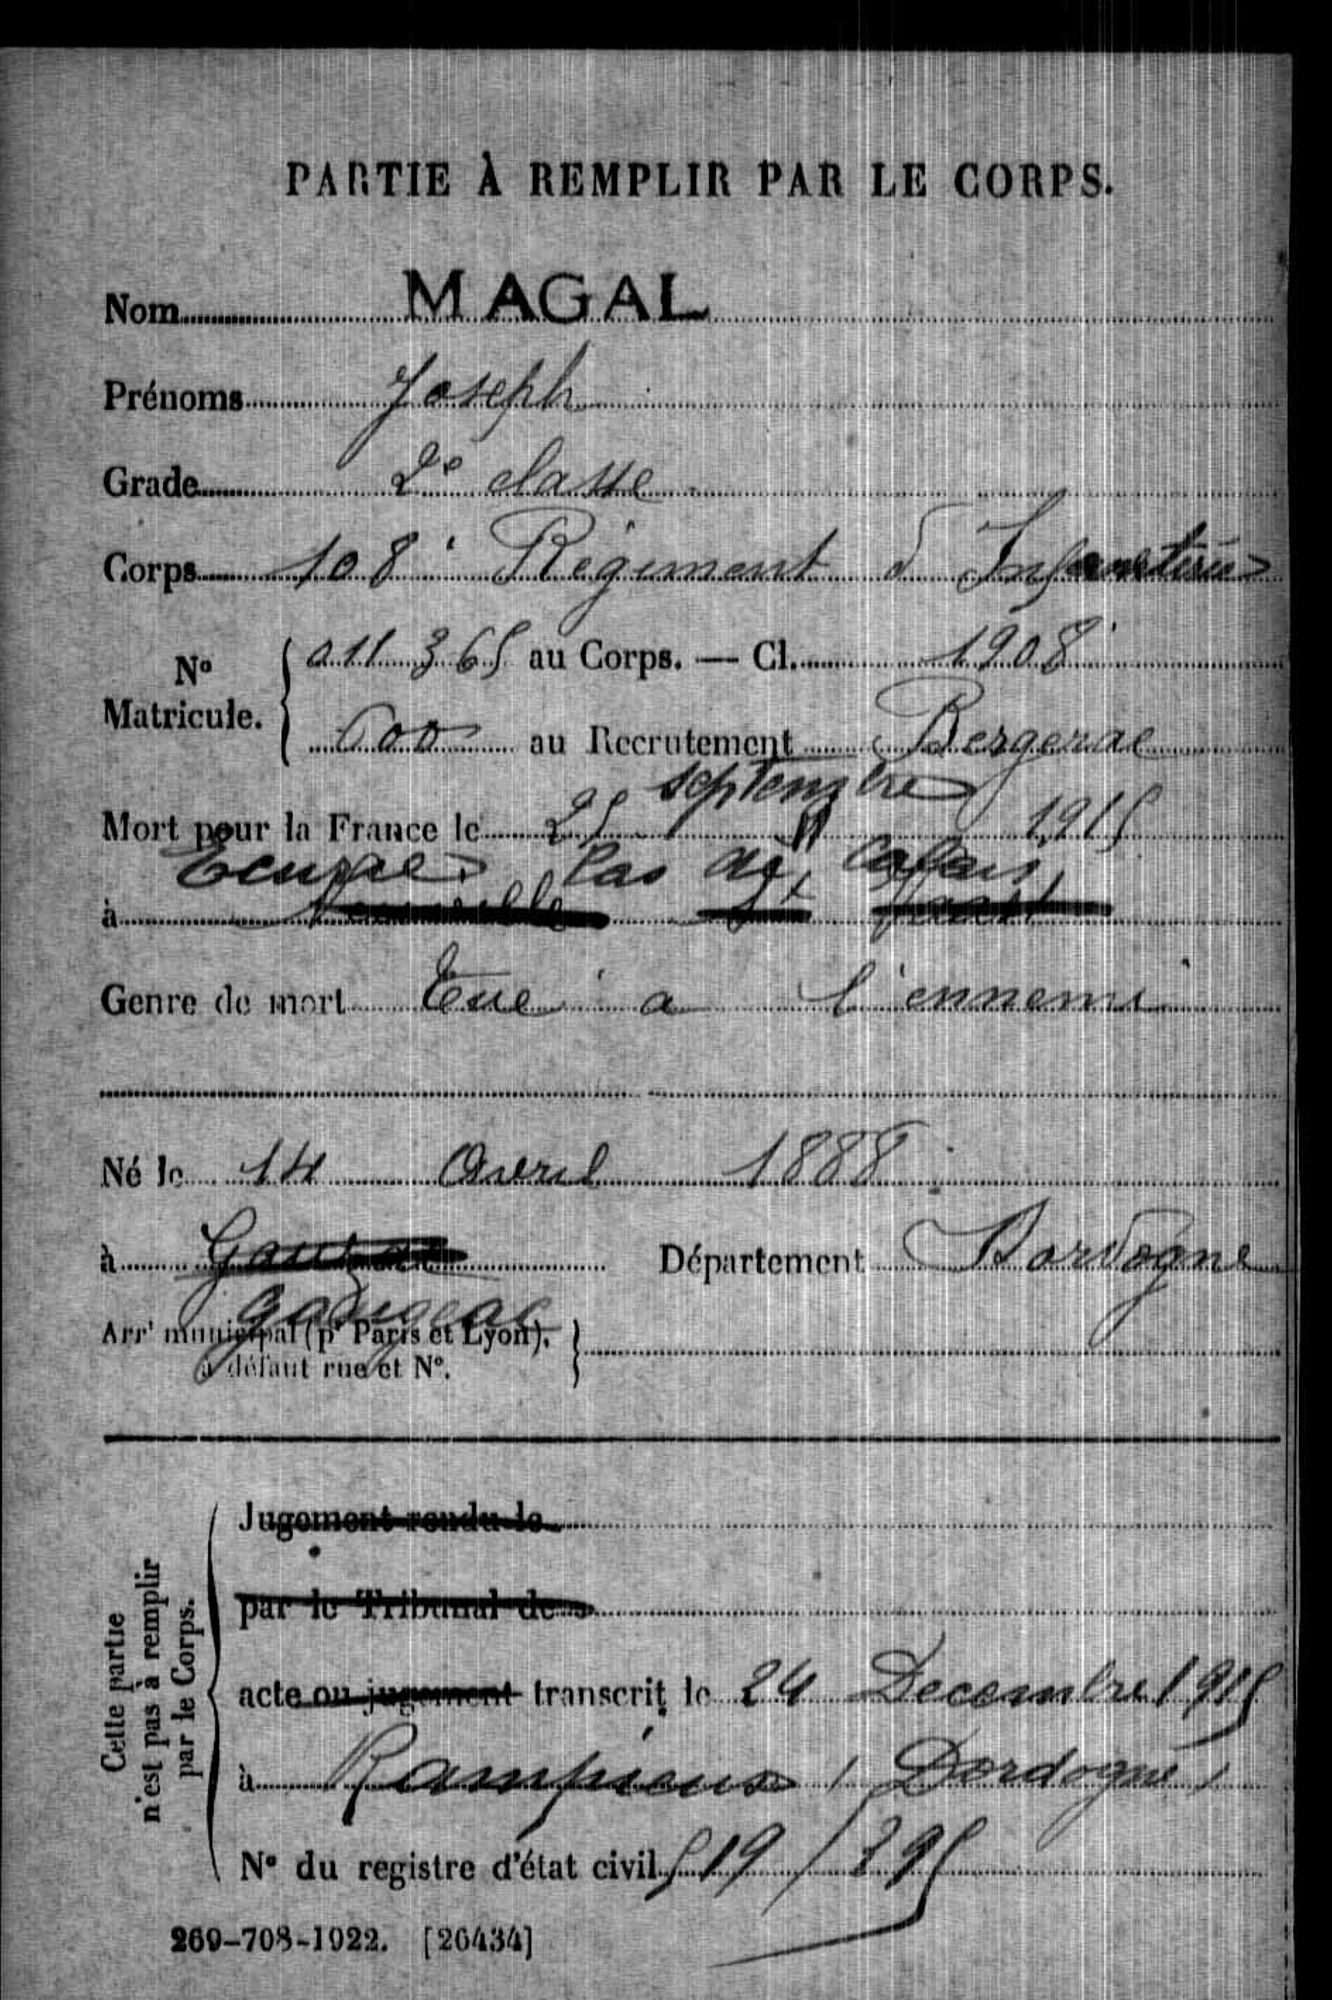 PARTIE À REMPLIR PAR LE CORPS.
Nom MAGAL
Prénoms Joseph
Grade 2e classe
Corps 108e Régiment d'Infanterie
No Matricule. { 011 365 au Corps. — Cl. 1908
600 au Recrutement Bergerac
septembre
Mort pour la France le 25 1915
Ecurie Pas de Calais
à Neuville St Vaast
Genre de mort Tué à l'ennemi
Né le 14 Avril 1888
à Département Dordogne
Arrt municipal (pr Paris et Lyon),
à défaut rue et No.
Cette partie n'est pas à remplir par le Corps.
Jugement rendu le
par le Tribunal de
acte ou jugement transcrit le 24 Decembre 1915
à Rampieux (Dordogne)
No du registre d'état civil 519/395
269-708-1922. [26434]